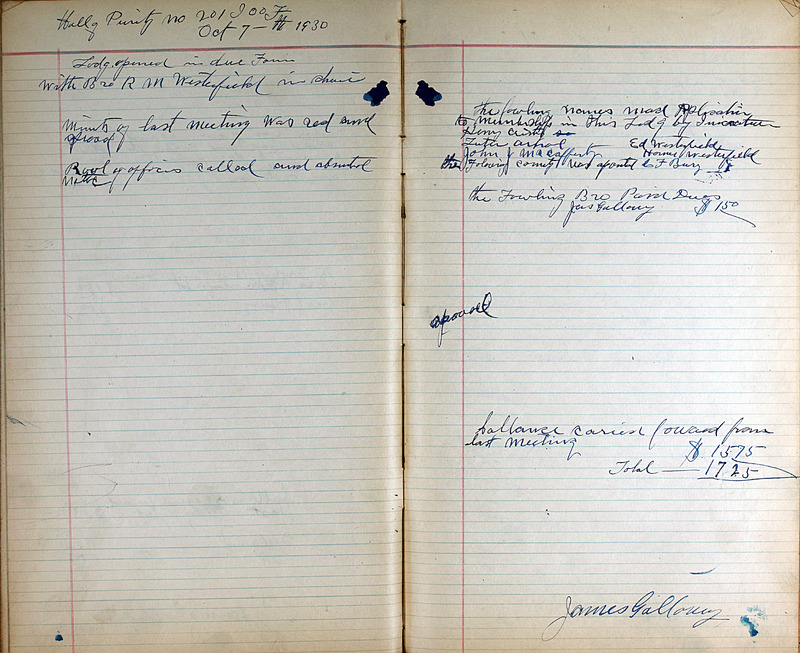 Hall of Purity no 201 I OO F
Oct 7 - th 1930
Lodg opened in due Form
with Bro R M Westerfield in chair
Minits of last meeting was red and
aproad
Rool of officis called and absentd
noted
the fowling names mad Aplication
to Membership in this Lodg by
John J McCafferty Ed Westerfield
Westerfield
the Folowing comity was apointed F Bury
the Fowling Bro Paid Dues
Jas Gallowy $ 1 50
aproved
ballance caried foward from
last meeting
$ 1575
Total — 1725
James Gallowy